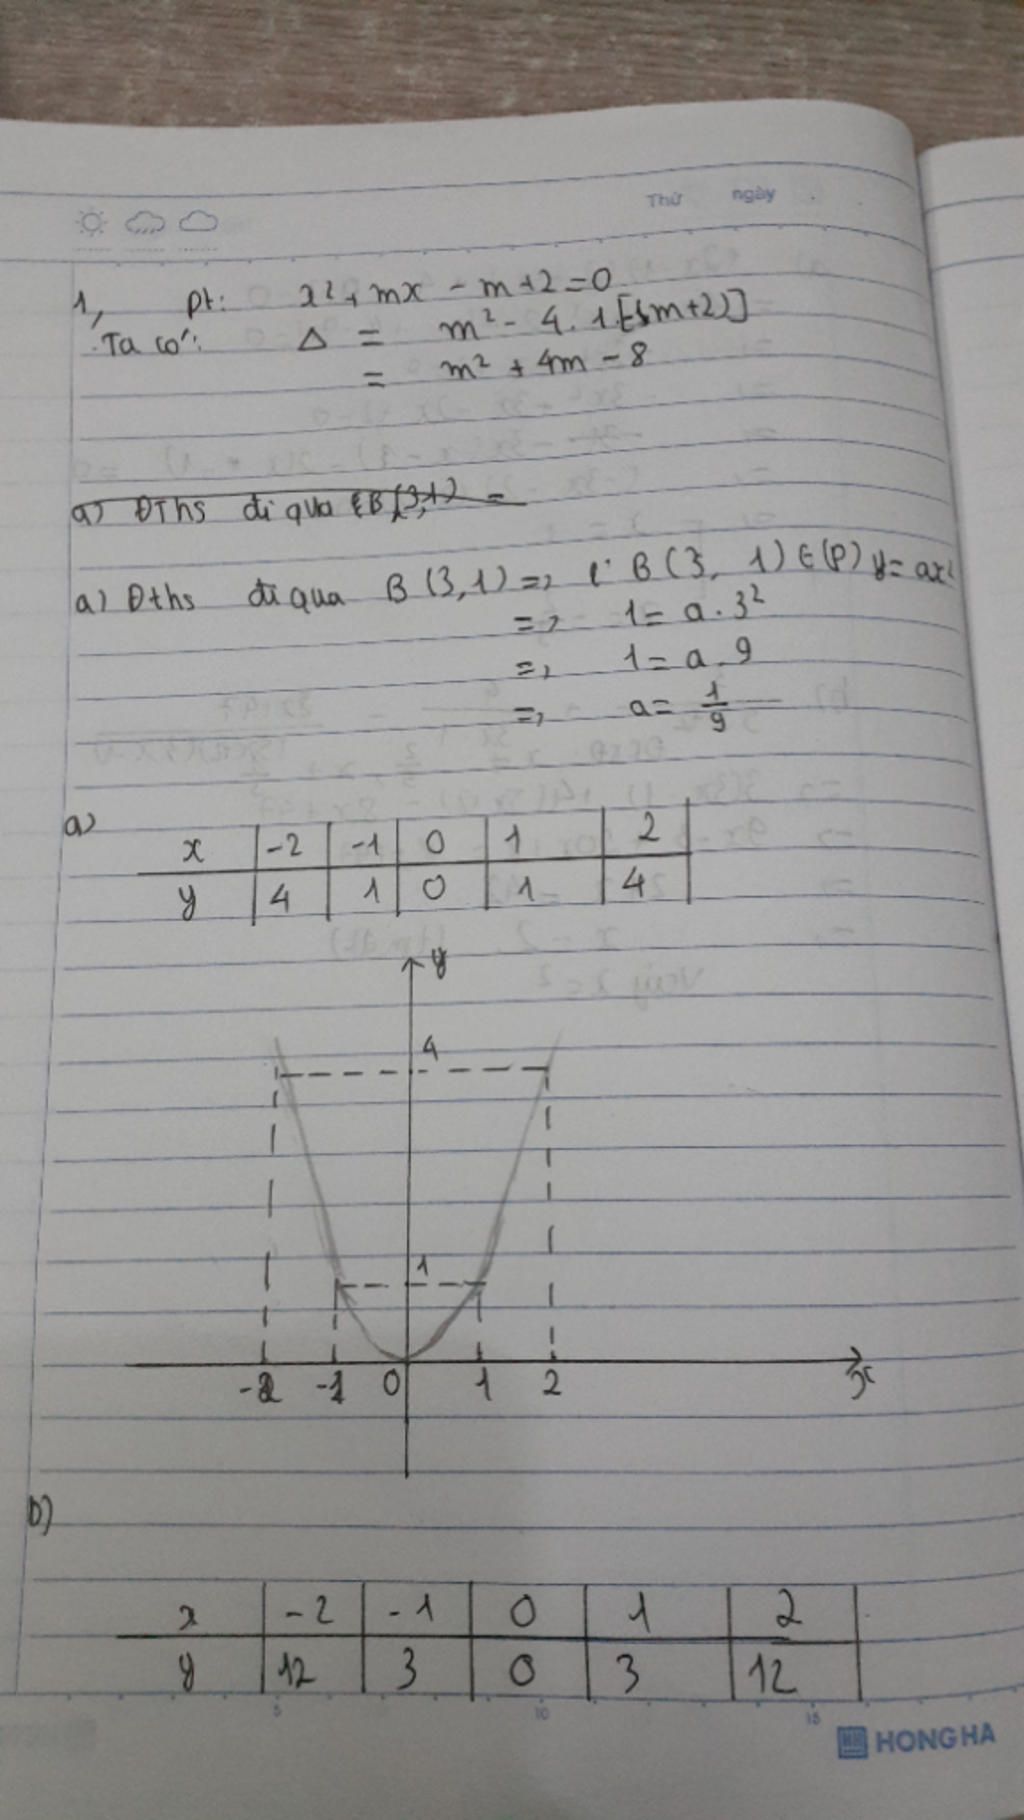 Thứ ngày
1, pt: x² + mx - m + 2 = 0
Ta có: Δ = m² - 4.1.[-(m+2)]
= m² + 4m - 8
a) Đths đi qua B(3,1) =
a) Đths đi qua B(3,1) => B(3, 1) ∈ (P) y = ax²
=> 1 = a . 3²
=> 1 = a . 9
=> a = 1/9
a)
x -2 -1 0 1 2
y 4 1 0 1 4
y
4
1
-2 -1 0 1 2 x
b)
x -2 -1 0 1 2
y 12 3 0 3 12
5 10 15
HONG HA